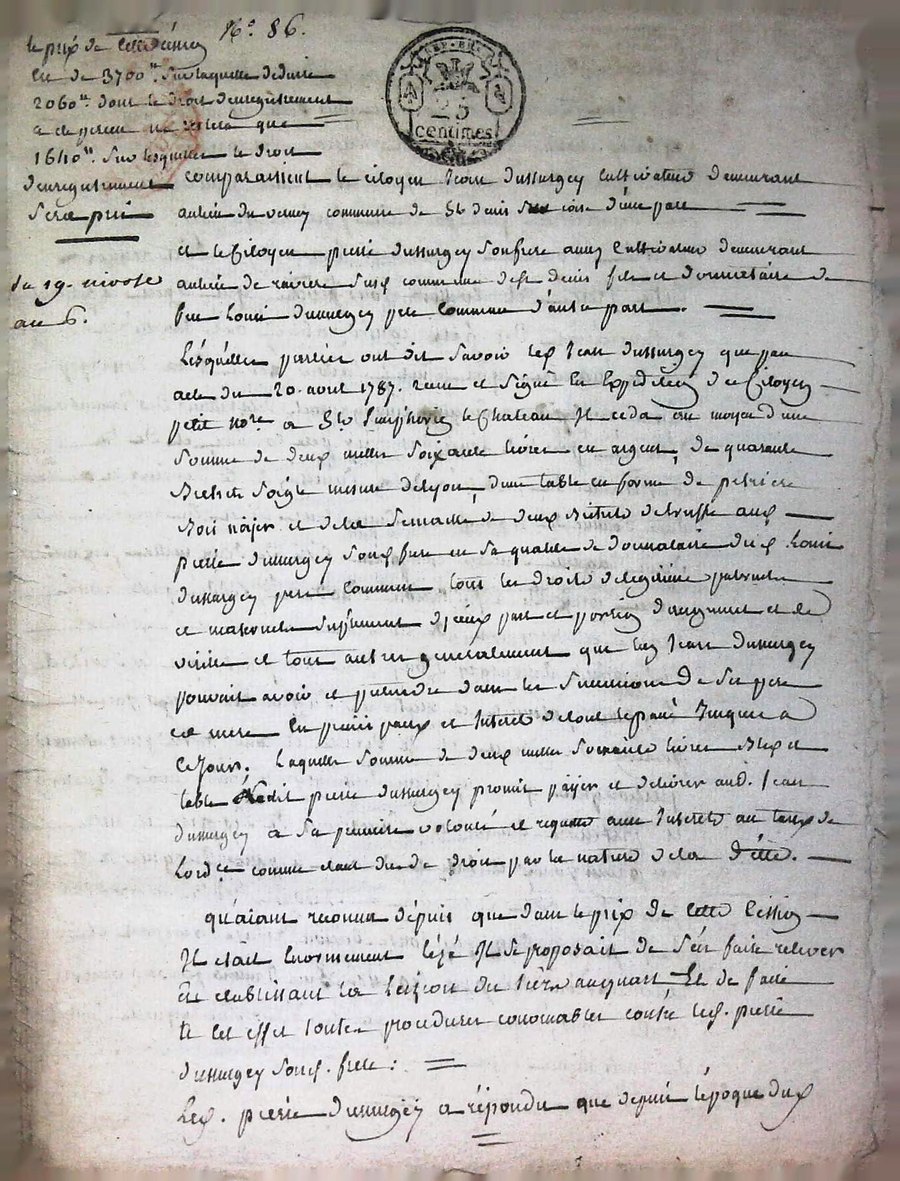 N.° 86.
le prix de cette cession
est de 3700.tt sur laquelle deduire
2060.tt dont le droit denregistrement
a ete percu ne restera que
1640.tt sur lesquelles le droit
denregistrement
sera percu
REP. FRA.
25
centimes
du 19. nivose
an 6.
comparaissent le citoyen Jean dussurgey cultivateur demeurant
au lieu du verney commune de St denis sur coise d'une part
et le Citoyen pierre dussurgey son frere aussi cultivateur demeurant
au lieu de commune de St denis fils et donnataire de
feu Louis dussurgey pere commun d'autre part.
Lesquelles parties ont dit savoir led Jean dussurgey que par
acte du 20. aout 1787. recu et signé en Expedition de Ce Citoyen
petit nore a St Simphorien le Chateau Il ceda au moyen d'une
somme de deux milles soixante livres en argent, de quarante
Bichets soigle mesure de lyon, d'une table en forme de petriere
Bois noyer et de la semaille de deux Bichets de truffe aud
pierre dussurgey sond frere en sa qualité de donnataire dud Louis
dussurgey pere commun tous les droits de legitime paternelle
et maternelle suplement d'iceux part et portion d'augment et de
virile et tous autres generalement que led Jean dussurgey
pouvait avoir et pretendre dans les successions de ses pere
et mere en principaux et Interets de tout le passé Jusques a
ce Jour. Laquelle somme de deux milles soixante livres Bled et
table ledit pierre dussurgey promit payer et delivrer aud. Jean
dussurgey a sa premiere volonté et requette avec Interets au taux de
Lordce comme etant due de droit par la nature de la dette.
qu'aiant reconnu depuis que dans le prix de cette Cession
Il etait Enormement lézé Il se proposait de s'en faire relever
En etablissant la lézion du tiers au quart Et de faire
a cet effet toutes procedures convenables contre led. pierre
dussurgey sond. frere:
Led. pierre dussurgey a répondu que depuis l'époque dud